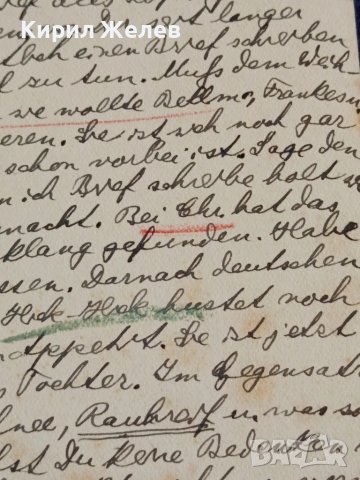 Кирил Желев
langer
einen Brief schreiben
zu tun. Muß dem Weih
wollte Bellmo, Frankes
eren. Sie ist weh noch gar
schon vorbei ist. Sage den
n ich Brief schreibe holt w
macht. Bei Ehr. hat das
klang gefunden. Habe
ssen. Darnach deutschen
Hok-Hok hustet noch
Appetit. Sie ist jetzt
Tochter. Im Gegensatz
nee, Rauhreif u. was so
st Du keine Bedenken
bazar.bg